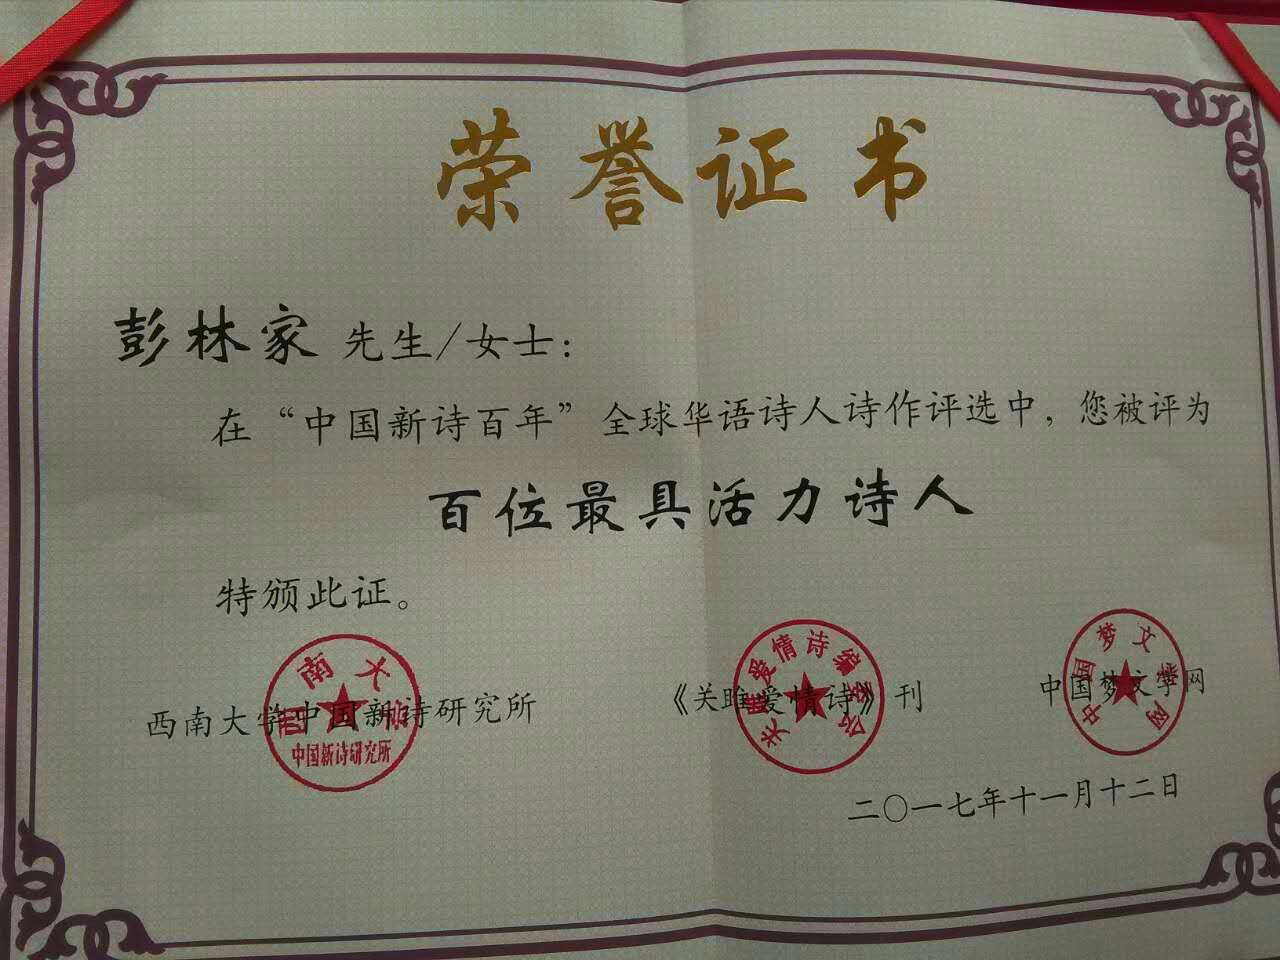 荣誉证书
彭林家 先生/女士：
在“中国新诗百年”全球华语诗人诗作评选中，您被评为
百位最具活力诗人
特颁此证。
西南大学中国新诗研究所 《关雎爱情诗》刊 中国梦文学网
西南大学
中国新诗研究所
关雎爱情诗编委会
中国梦文学网
二〇一七年十一月十二日